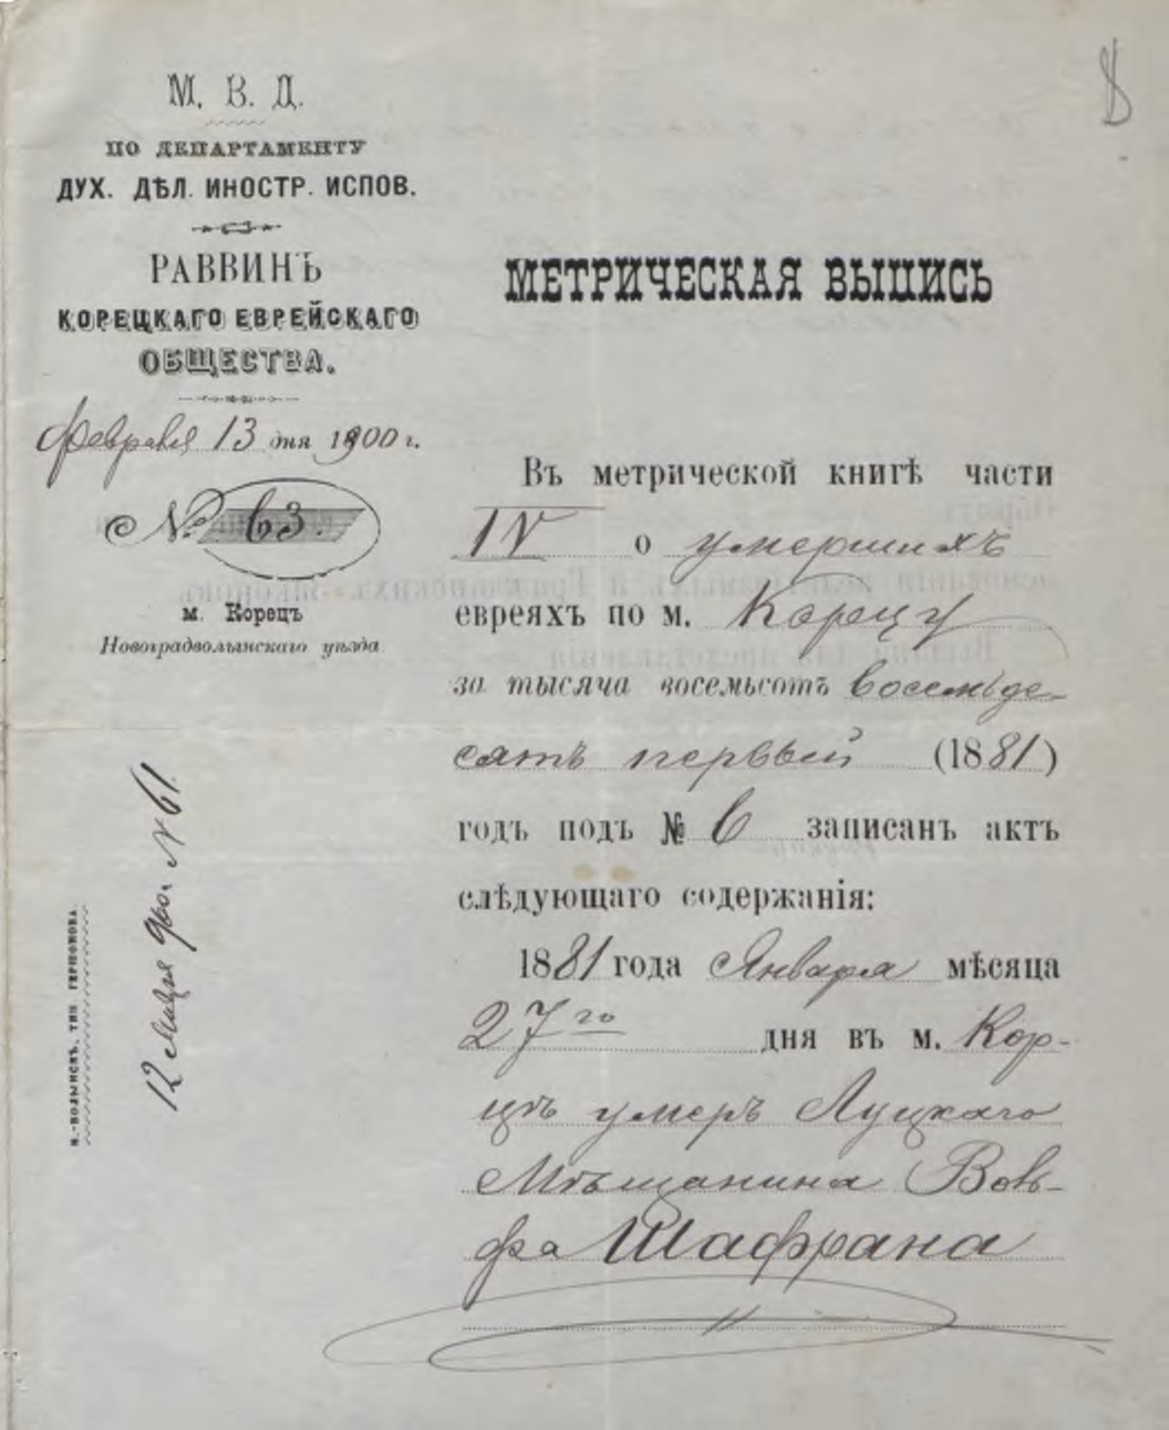 М. В. Д.
ПО ДЕПАРТАМЕНТУ
ДУХ. ДѢЛ. ИНОСТР. ИСПОВ.
РАВВИНЪ
КОРЕЦКАГО ЕВРЕЙСКАГО
ОБЩЕСТВА.
Февраля 13 дня 1900 г.
№ 63.
м. Корецъ
Новоградволынскаго уѣзда
12 N 61
Н.-ВОЛЫНСКЪ, ТИП. ГЕРШОНОВА.
МЕТРИЧЕСКАЯ ВЫПИСЬ
Въ метрической книгѣ части
IV о умершихъ
евреяхъ по м. Корецу
за тысяча восемьсотъ восемьде-
сятъ первый (1881)
годъ подъ № 6 записанъ актъ
слѣдующаго содержанія:
1881 года Января мѣсяца
27го дня въ м. Кор-
цѣ умеръ Луцкаго
Мѣщанина Вов-
фа Шафрана